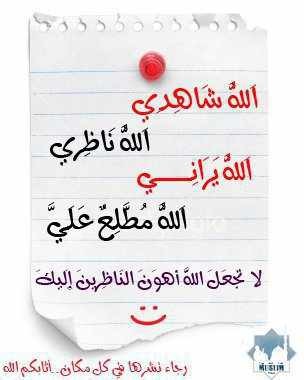 اَللهُ شَاهِدِي
اَللهُ نَاظِرِي
اَللهُ يَرَانِـــــي
اَللهُ مُطَّلِعٌ عَلَيَّ
لا تجعل الله أهونَ الناظرينَ إليكَ
رجاء نشرها في كل مكان..أثابكم الله
MUSLIM